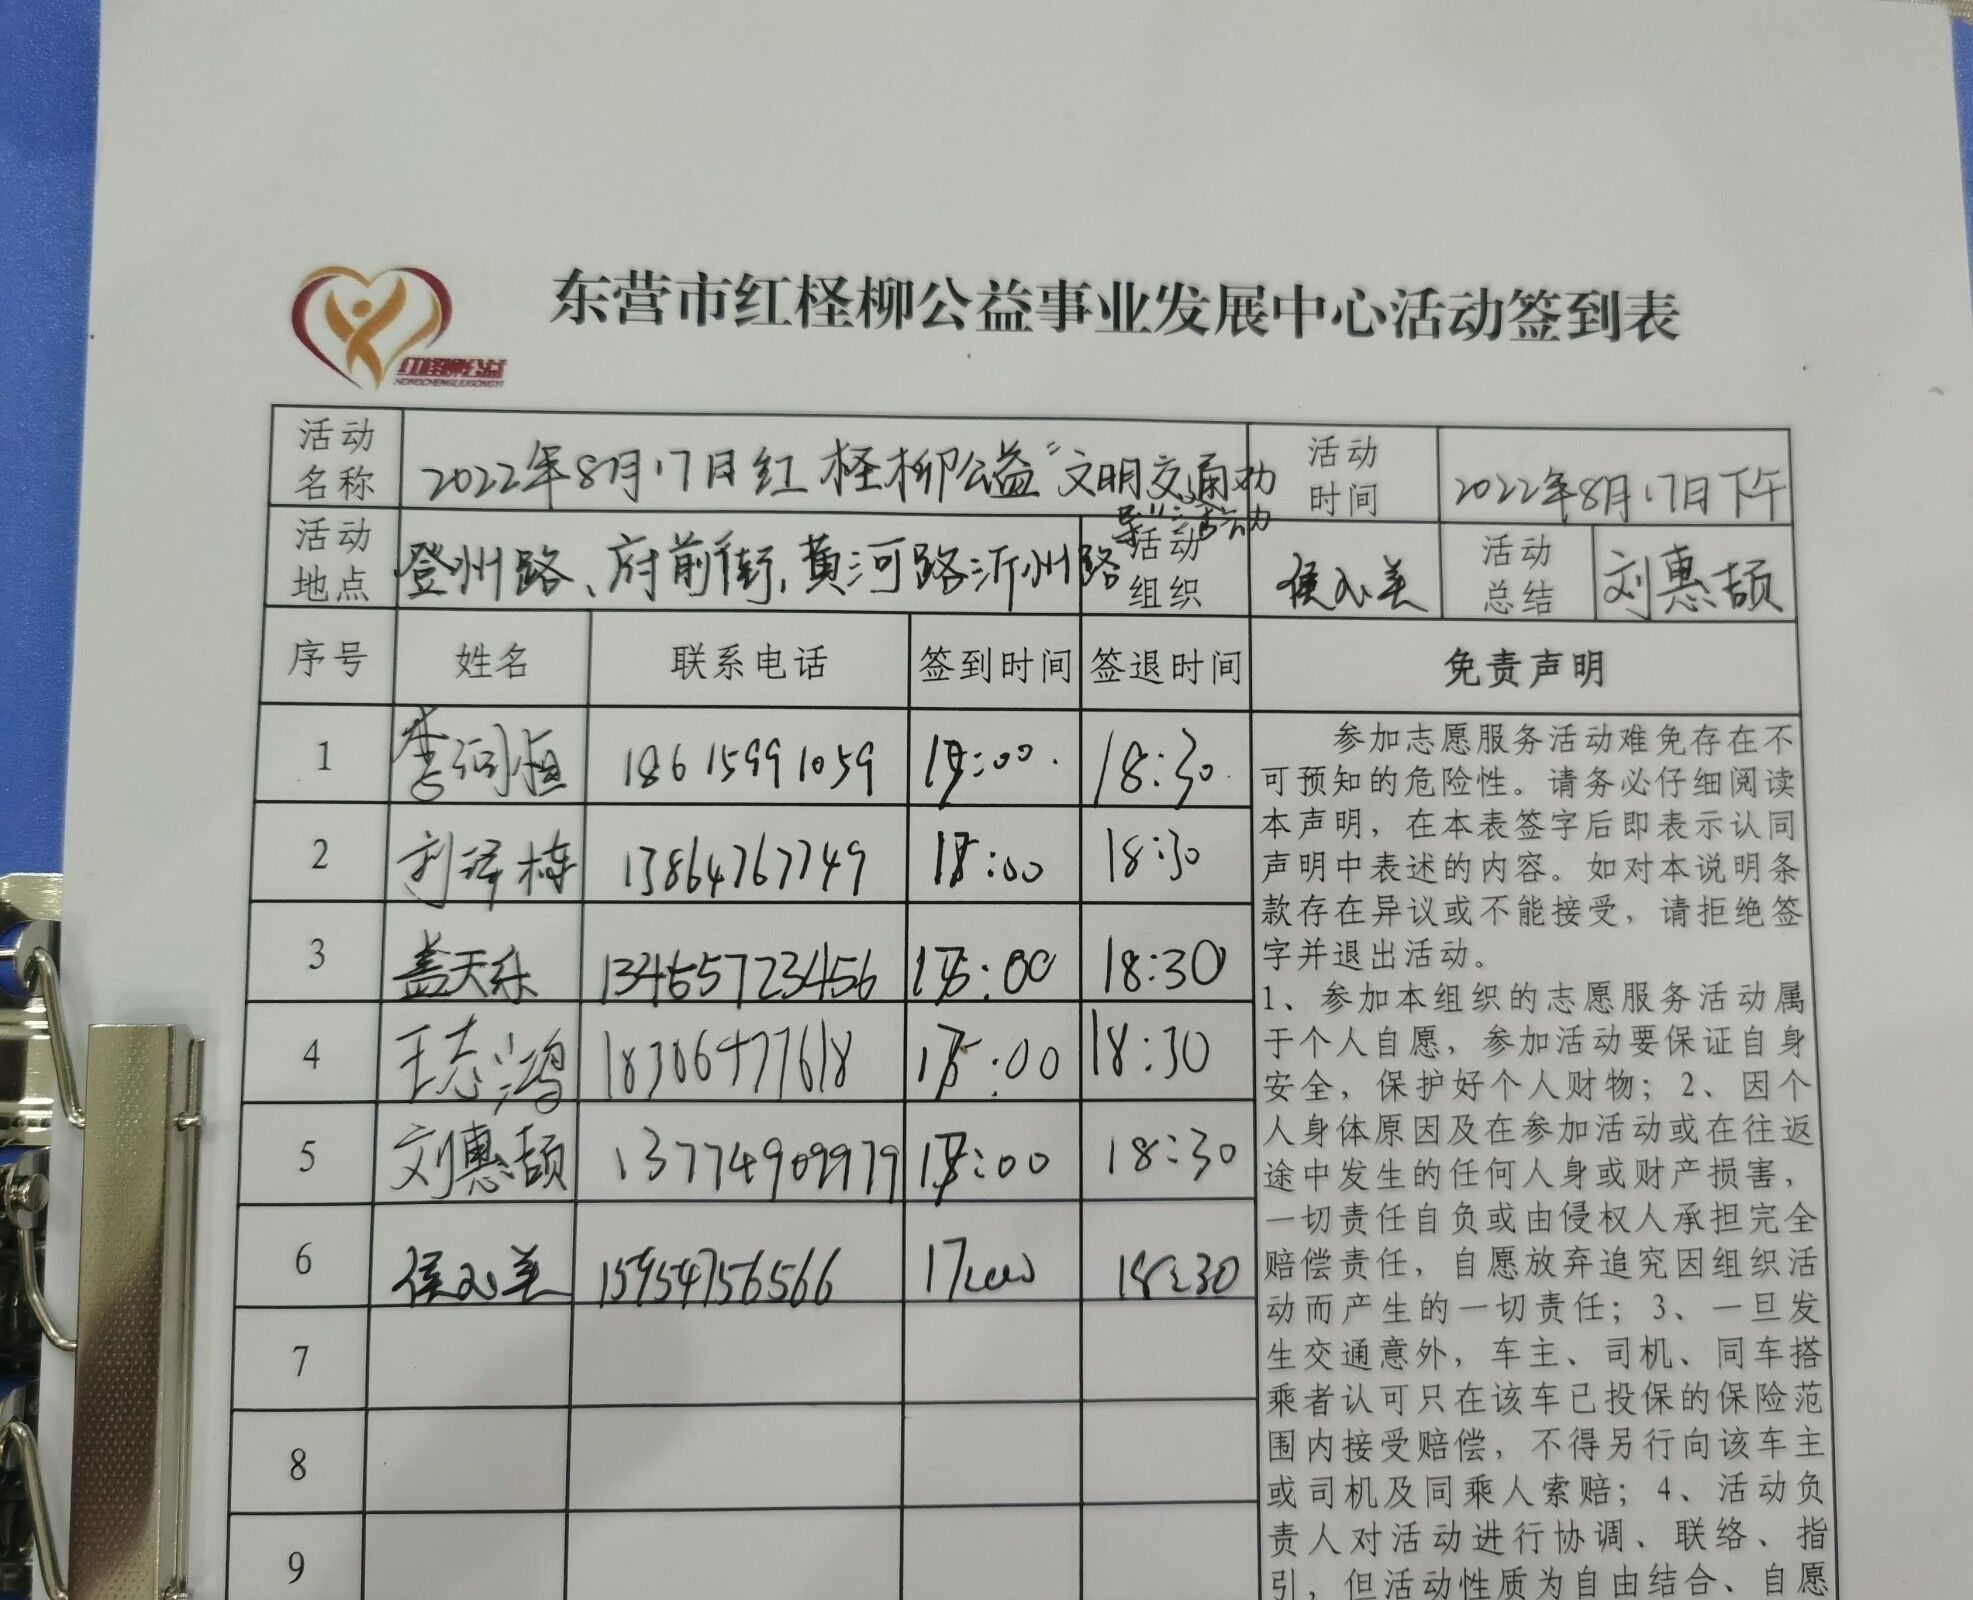 东营市红柽柳公益事业发展中心活动签到表
红柽柳公益
HONGCHENGLIUGONGYI
活动名称 2022年8月17日红柽柳公益“文明交通劝导”活动 活动时间 2022年8月17日下午
活动地点 登州路、府前街、黄河路沂州路 活动组织 侯永美 活动总结 刘惠颉
序号 姓名 联系电话 签到时间 签退时间 免责声明
1 18615991059 18:30
2 刘泽栋 13864767749 18:30
3 盖天乐 13465723456 18:30
4 王志鸿 18306477618 18:30
5 刘惠颉 13774909979 18:30
6 侯永美 15954756566 17:00 18:30
7
8
9
参加志愿服务活动难免存在不
可预知的危险性。请务必仔细阅读
本声明，在本表签字后即表示认同
声明中表述的内容。如对本说明条
款存在异议或不能接受，请拒绝签
字并退出活动。
1、参加本组织的志愿服务活动属
于个人自愿，参加活动要保证自身
安全，保护好个人财物；2、因个
人身体原因及在参加活动或在往返
途中发生的任何人身或财产损害，
一切责任自负或由侵权人承担完全
赔偿责任，自愿放弃追究因组织活
动而产生的一切责任；3、一旦发
生交通意外，车主、司机、同车搭
乘者认可只在该车已投保的保险范
围内接受赔偿，不得另行向该车主
或司机及同乘人索赔；4、活动负
责人对活动进行协调、联络、指
引，但活动性质为自由结合、自愿